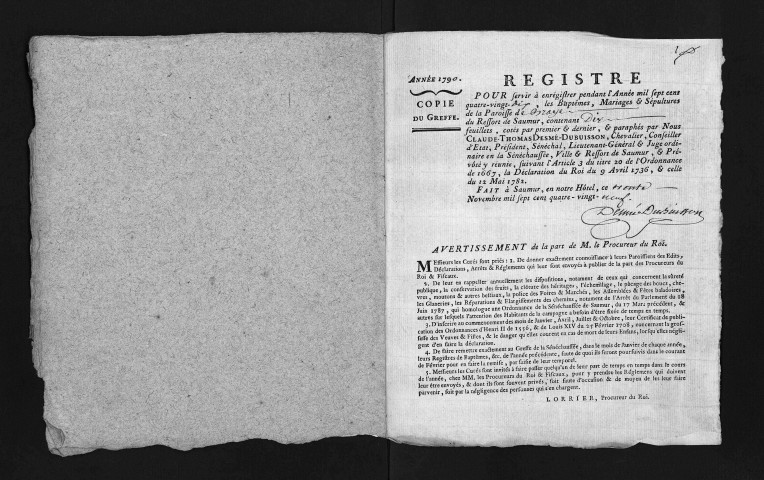 ANNÉE 1790.
COPIE
DU GREFFE.
REGISTRE
POUR servir à enrégistrer pendant l'Année mil sept cens
quatre-vingt-dix, les Baptêmes, Mariages & Sépultures
de la Paroisse de
du Ressort de Saumur, contenant Dix
feuillets, cotés par premier & dernier, & paraphés par Nous
CLAUDE-THOMAS DESMÉ-DUBUISSON, Chevalier, Conseiller
d'Etat, Président, Sénéchal, Lieutenant-Général & Juge ordi-
naire en la Sénéchaussée, Ville & Ressort de Saumur, & Pré-
vôté y réunie, suivant l'Article 3 du titre 20 de l'Ordonnance
de 1667, la Déclaration du Roi du 9 Avril 1736, & celle
du 12 Mai 1782.
FAIT à Saumur, en notre Hôtel, ce trente
Novembre mil sept cent quatre-vingt-neuf.
Desmé Dubuisson
AVERTISSEMENT de la part de M. le Procureur du Roi.
MEssieurs les Curés sont priés: 1. De donner exactement connoissance à leurs Paroissiens des Edits,
Déclarations, Arrêts & Réglements qui leur sont envoyés à publier de la part des Procureurs du
Roi & Fiscaux.
2. De leur en rappeller annuellement les dispositions, notamment de ceux qui concernent la sûreté
publique, la conservation des fruits, la clôture des héritages, l'échenillage, le pacage des boucs, che-
vres, moutons & autres bestiaux, la police des Foires & Marchés, les Assemblées & Fêtes baladoires,
les Glaneries, les Réparations & Elargissements des chemins, notament de l'Arrêt du Parlement du 18
Juin 1787, qui homologue une Ordonnance de la Sénéchaussée de Saumur, du 17 Mars précédent, &
autres sur lesquels l'attention des Habitants de la campagne a besoin d'être fixée de temps en temps.
3. D'inscrire au commencement des mois de Janvier, Avril, Juillet & Octobre, leur Certificat de publi-
cation des Ordonnances d'Henri II de 1556, & de Louis XIV du 27 Février 1708, concernant la gros-
sesse des Veuves & Filles, & le danger qu'elles courent en cas de mort de leurs Enfans, lorsqu'elles négli-
gent d'en faire la déclaration.
4. De faire remettre exactement au Greffe de la Sénéchaussée, dans le mois de Janvier de chaque année,
leurs Registres de Baptêmes, &c. de l'année précédente, faute de quoi ils seront poursuivis dans le courant
de Février pour en faire la remise, par saisie de leur temporel.
5. Messieurs les Curés sont invités à faire passer quelqu'un de leur part de temps en temps dans le cours
de l'année, chez MM. les Procureurs du Roi & Fiscaux, pour y prendre les Réglemens qui doivent
leur être envoyés, & dont ils sont souvent privés, soit faute d'occasion & de moyen de les leur faire
parvenir, soit par la négligence des personnes qui s'en chargent.
LORRIER, Procureur du Roi.